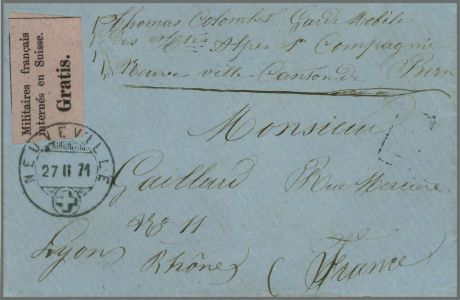 Thomas Colombet Garde Mobile
des Htes Alpes 1e Compagnie
Neuveville Canton de Bern
Militaires français
internés en Suisse.
Gratis.
NEUVEVILLE
27 II 71
Monsieur
Gaillard Rue Mercière
No 11
Lyon Rhône (France)